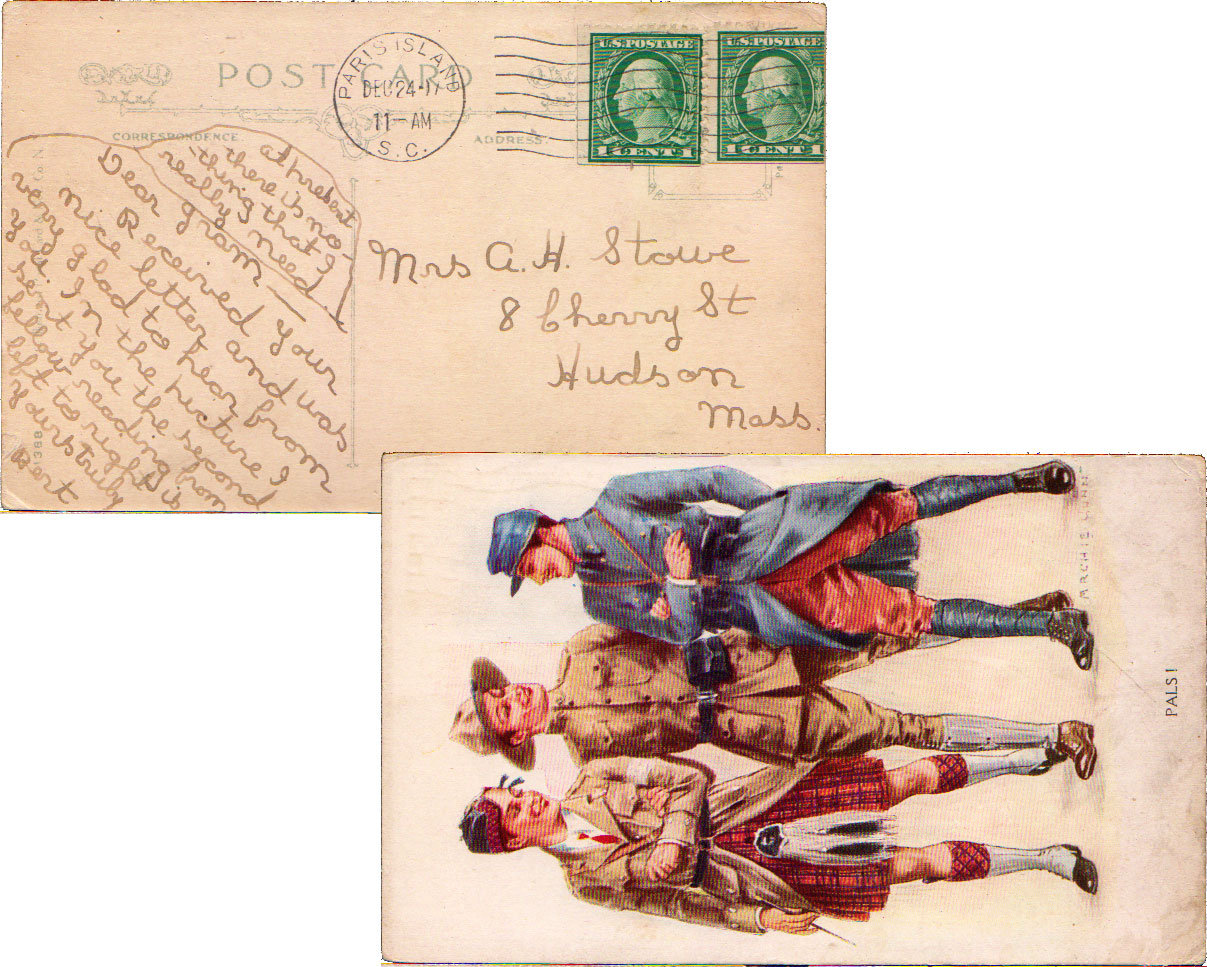 POST CARD
PARIS ISLAND
DEC 24-17
11-AM
S.C.
U.S. POSTAGE
1 CENT 1
U.S. POSTAGE
1 CENT 1
CORRESPONDENCE.
ADDRESS.
at present
there is no
thing that I
really need.
Dear Gram—
Received your
nice letter and was
very glad to hear from
you. In the picture I
sent you the second
fellow reading from
left to right is
Yours truly
Bert
Mrs A. H. Stowe
8 Cherry St
Hudson
Mass.
ARCHIE GUNN
PALS!